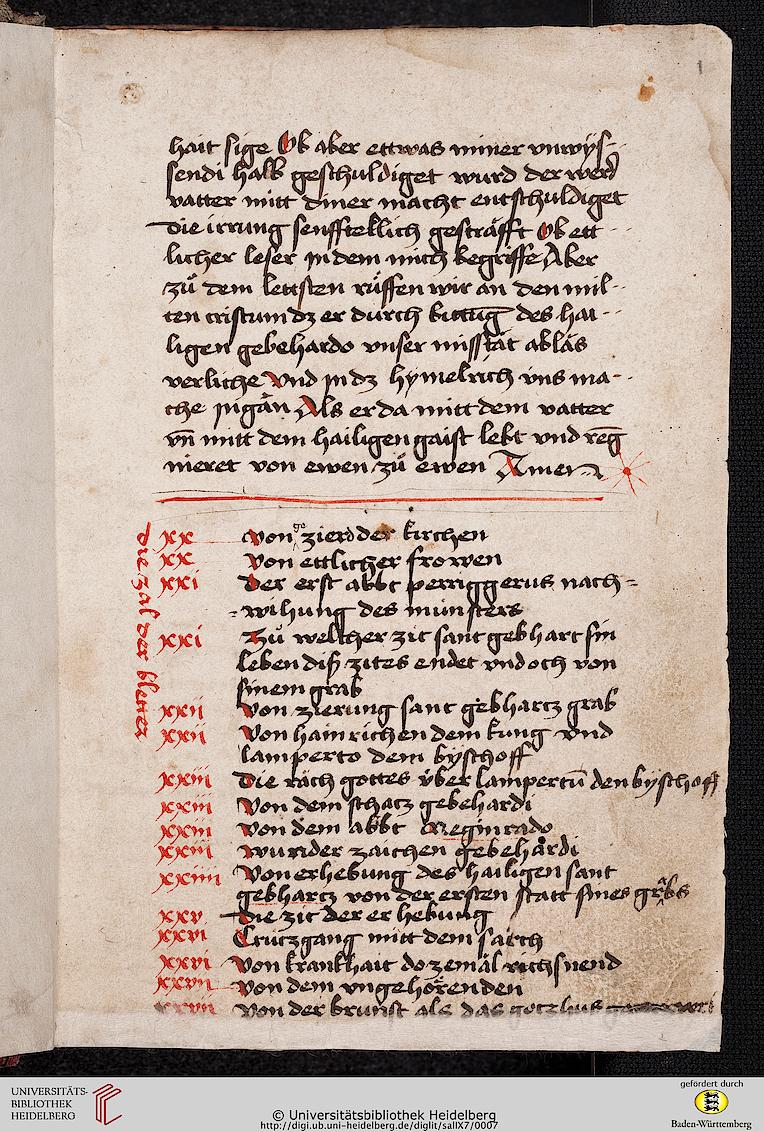 hait sige Ob aber ettwas miner vnwys-
sendi halb geschuldiget wurd der werd
vatter mitt diner macht entschuldiget
die irrung senffteklich gesträfft Ob ett-
licher leser indem mich begriffe Aber
zů dem lettsten růffen wir an den mil-
ten cristum dz er durch bittūg des hai-
ligen gebehardo vnser misstät abläs
verliche Vnd in dz hymelrich vns ma-
che ingän Als er da mitt dem vatter
vn̄ mitt dem hailigen gaist lebt vnd reg-
nieret von ewen zů ewen Amen
die zal der bletter
xx von gezierd der kirchen
xx von ettlicher frowen
xxi Der erst abbt perriggerus nach-
wihung des münsters
xxi Zů welcher zit sant gebhart sin
leben diß zites endet vnd och von
sinem grab
xxii von zierung sant gebhartz grab
xxii Von hainrichen dem kung vnd
lamperto dem byschoff
xxiii Die räch gottes über lampertū den byschoff
xxiii Von dem schatz gebehardi
xxiii von dem abbt Meginrado
xxiii wunder zaichen gebehardi
xxiiii Von erhebung des hailigen sant
gebhartz von der ersten statt sines grabs
xxv die zit der erhebung
xxvi Crützgang mitt dem sarch
xxvi Von krankhait do zemäl richsnend
xxvii Von dem vngehörenden
xxvii Von der brunst als das gotzhus
1
UNIVERSITÄTS-
BIBLIOTHEK
HEIDELBERG
© Universitätsbibliothek Heidelberg
http://digi.ub.uni-heidelberg.de/diglit/salIX7/0007
gefördert durch
Baden-Württemberg